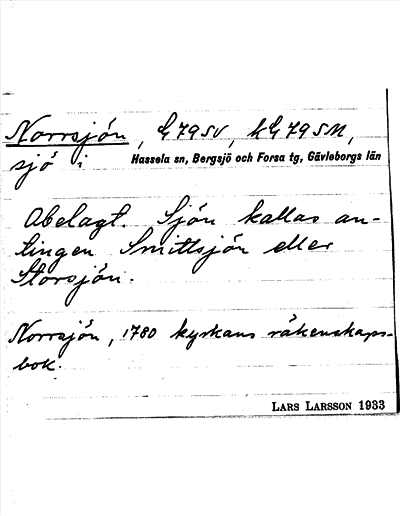 Norrsjön, G 79 SV, kG 79 SM,
sjö i Hassela sn, Bergsjö och Forsa tg, Gävleborgs län
Obelagt. Sjön kallas an-
tingen Smittsjön eller
Storsjön.
Norrsjön, 1780 kyrkans räkenskaps-
bok.
LARS LARSSON 1933